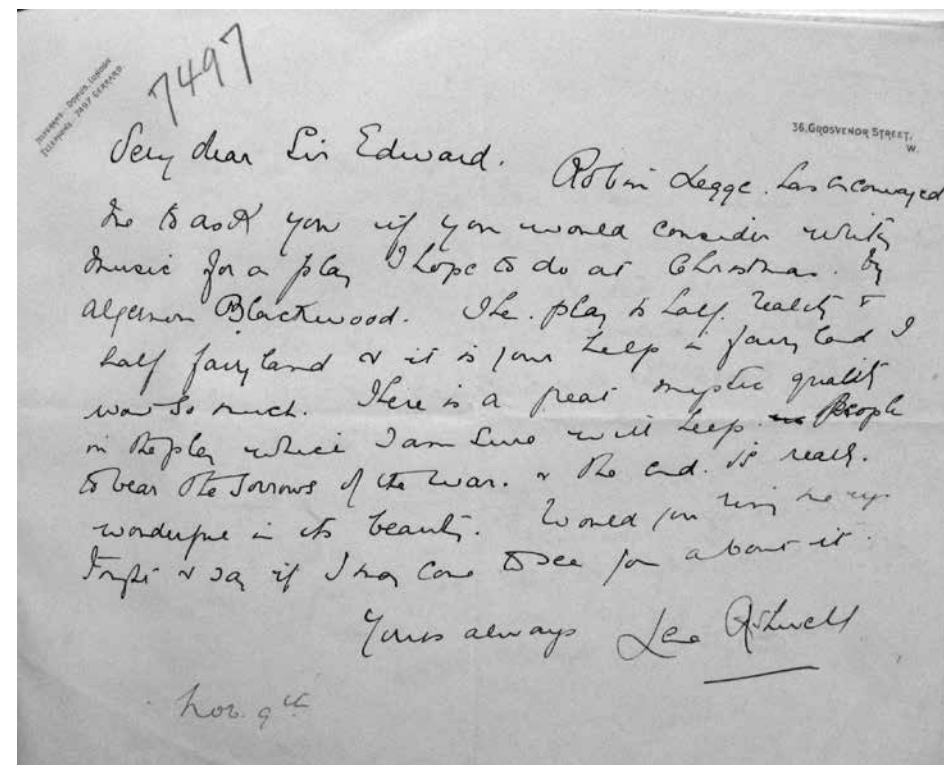 7497
TELEPHONE: 7497 GERRARD.
36, GROSVENOR STREET,
W.
Very dear Sir Edward. Robin Legge has encouraged
me to ask you if you would consider writing
music for a play I hope to do at Christmas by
Algernon Blackwood. The play is half reality &
half fairy land & it is your help in fairy land I
want so much. There is a great mystic quality
in the play which I am sure will help people
to bear the sorrows of the war. & the end is really
wonderful in its beauty. Would you ring me up
tonight & say if I may come to see you about it.
Yours always Lena Ashwell
Nov. 9th